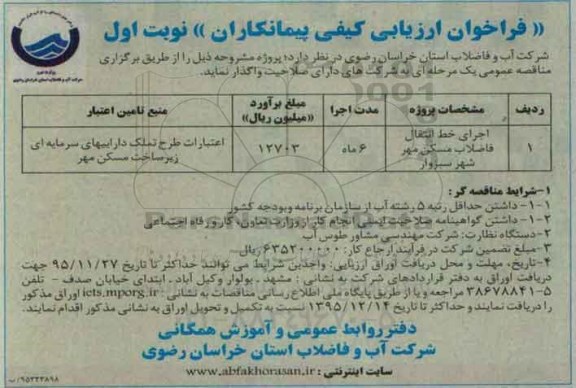 « فراخوان ارزیابی کیفی پیمانکاران » نوبت اول
شرکت آب و فاضلاب استان خراسان رضوی در نظر دارد؛ پروژه مشروحه ذیل را از طریق برگزاری
مناقصه عمومی یک مرحله ای به شرکت های دارای صلاحیت واگذار نماید.
ردیف مشخصات پروژه مدت اجرا مبلغ برآورد «میلیون ریال» منبع تامین اعتبار
۱ اجرای خط انتقال فاضلاب مسکن مهر شهر سبزوار ۶ ماه ۱۲۷۰۳ اعتبارات طرح تملک داراییهای سرمایه ای زیرساخت مسکن مهر
۱-شرایط مناقصه گر :
۱-۱- داشتن حداقل رتبه ۵ رشته آب از سازمان برنامه وبودجه کشور
۱-۲- داشتن گواهینامه صلاحیت ایمنی انجام کار از وزارت تعاون، کار و رفاه اجتماعی
۲-دستگاه نظارت: شرکت مهندسی مشاور طوس آب
۳-مبلغ تضمین شرکت در فرآیند ارجاع کار: ۶۳۵۲۰۰۰۰۰ ریال
۴-تاریخ، مهلت و محل دریافت اوراق ارزیابی: واجدین شرایط می توانند حداکثر تا تاریخ ۹۵/۱۱/۲۷ جهت
دریافت اوراق به دفتر قراردادهای شرکت به نشانی : مشهد . بولوار وکیل آباد . ابتدای خیابان صدف - تلفن
۵-۳۸۶۷۸۸۴۱ مراجعه و یا از طریق پایگاه ملی اطلاع رسانی مناقصات به نشانی : iets.mporg.ir اوراق مذکور
را دریافت نمایند و حداکثر تا تاریخ ۱۳۹۵/۱۲/۱۴ نسبت به تکمیل و تحویل اوراق به نشانی مذکور اقدام نمایند.
دفتر روابط عمومی و آموزش همگانی
شرکت آب و فاضلاب استان خراسان رضوی
سایت اینترنتی : www.abfakhorasan.ir
۹۵۳۳۳۸۹۸/ب